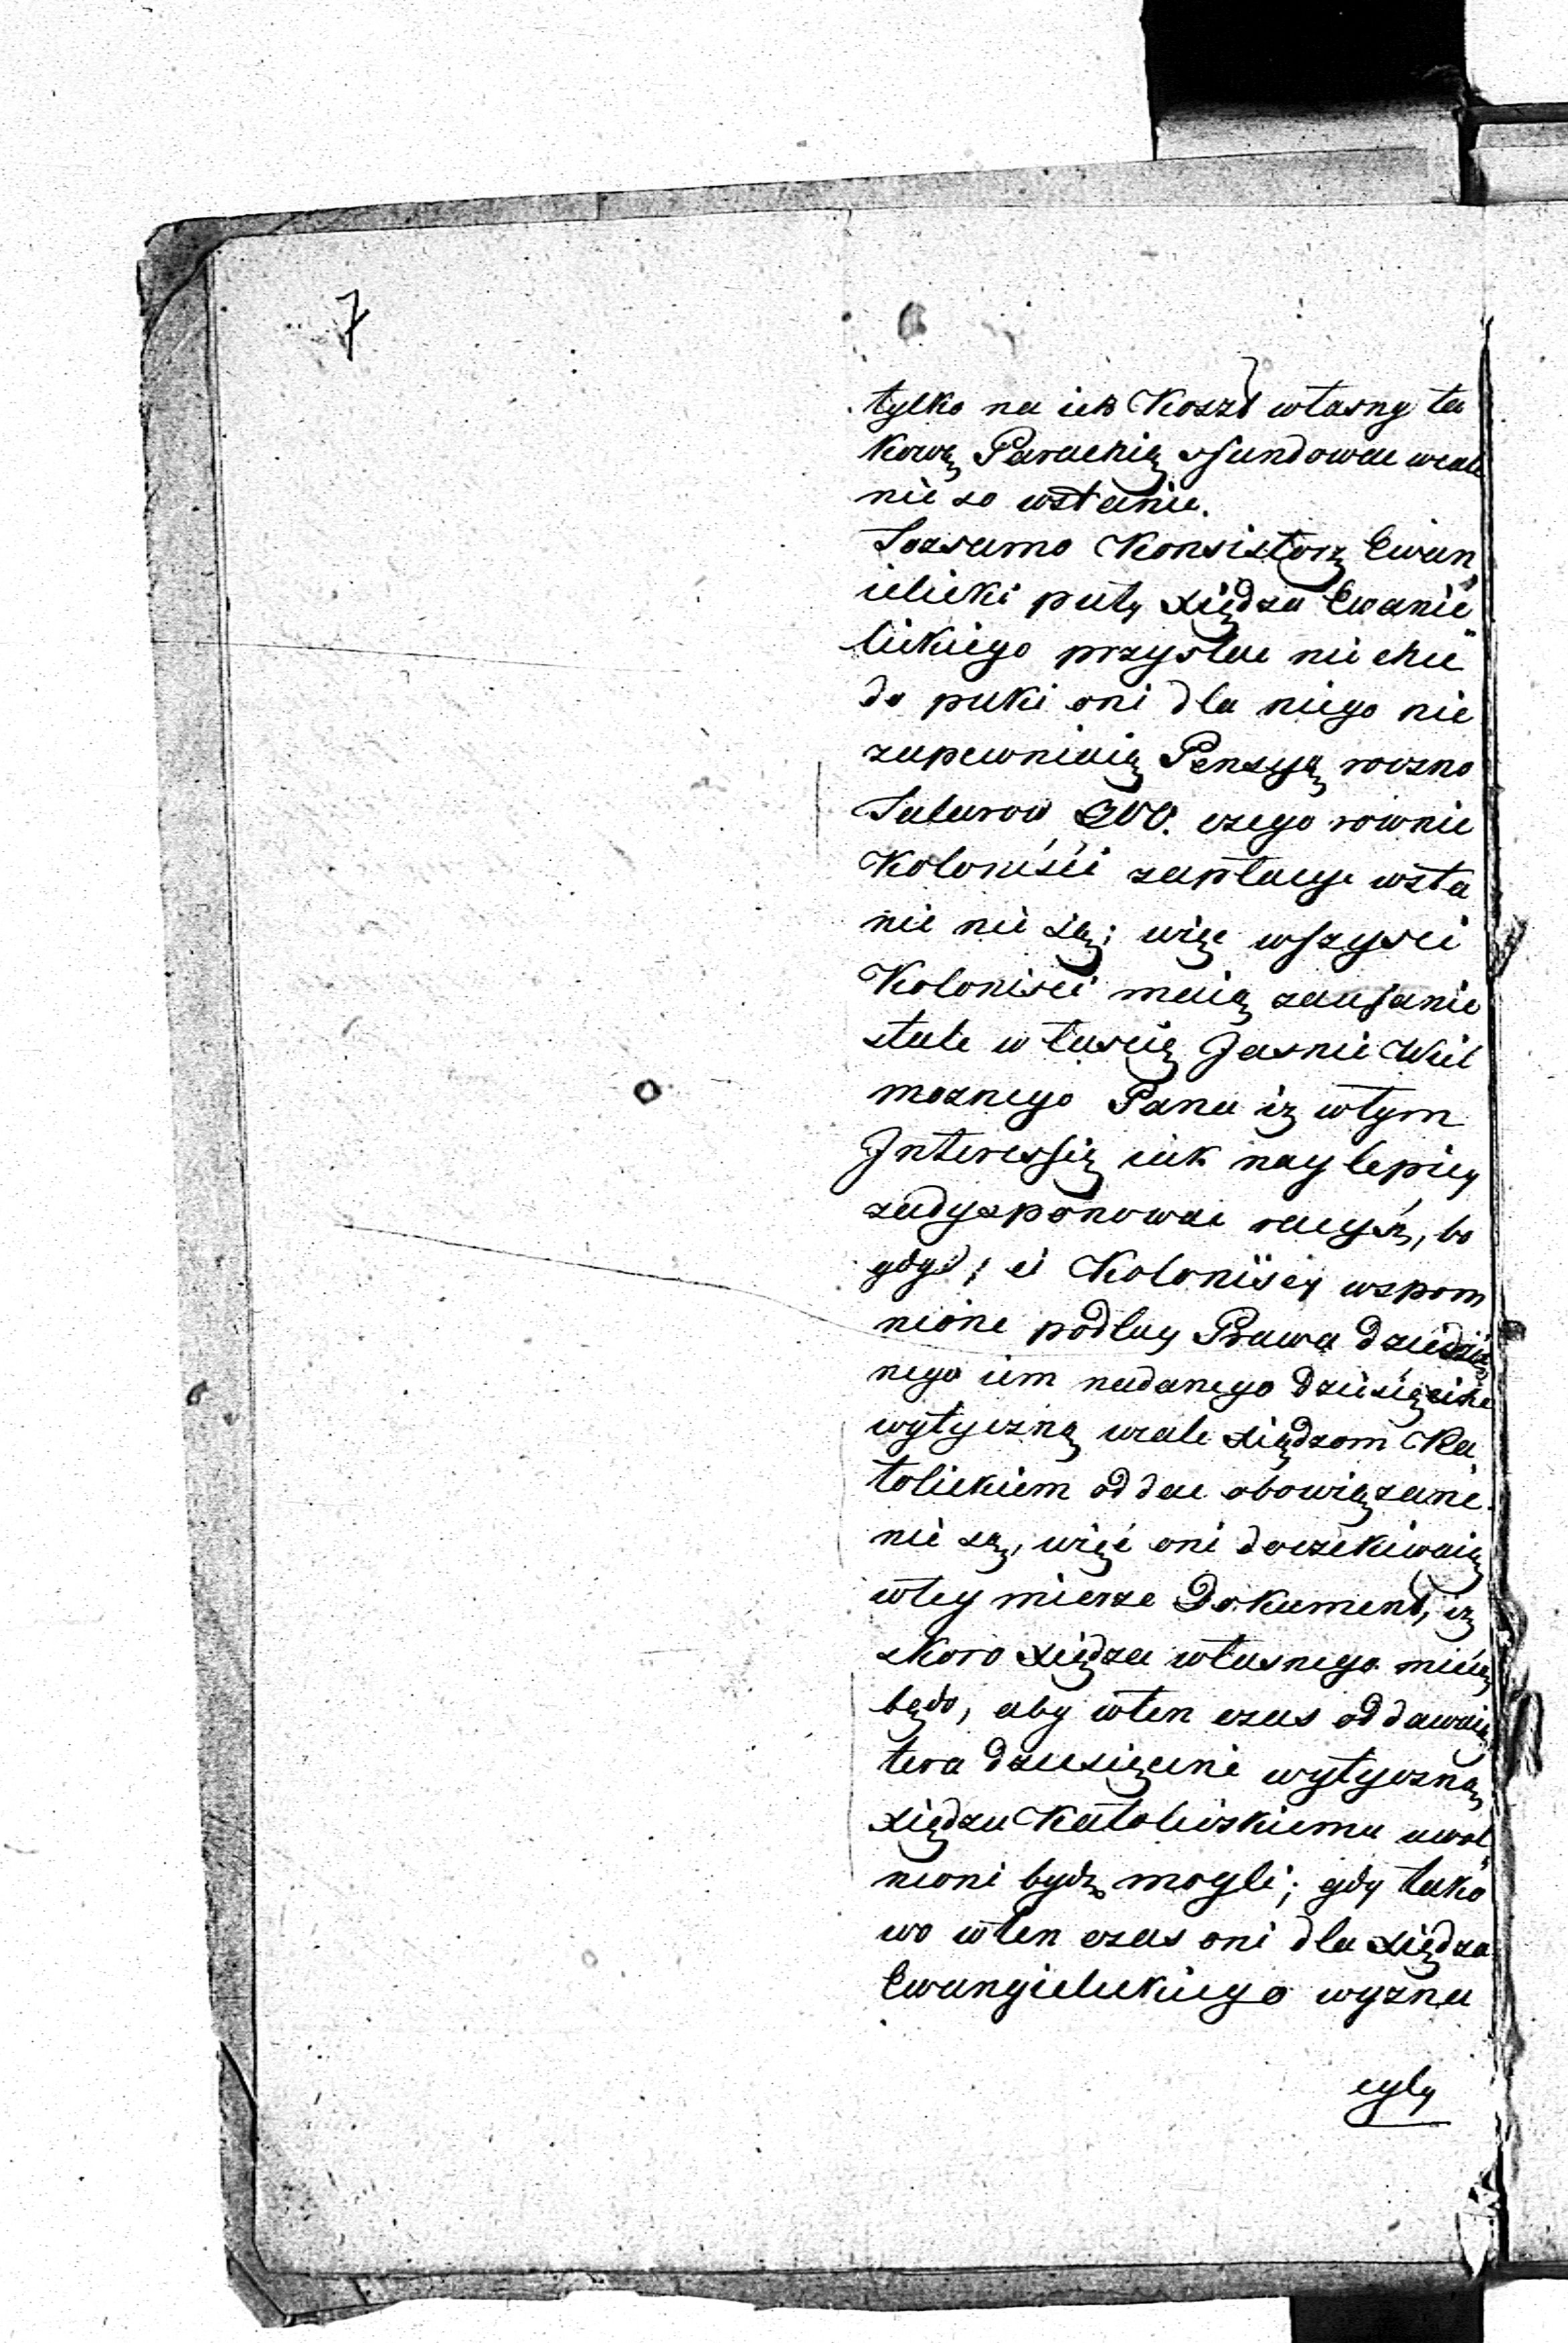 7
tylko na ich Koszt własny ta
kową Parachią sfundowac wcale
nie so wstanie.
Tozsamo Konsistorz Ewan
ielicki puty xiędza Ewanie
lickiego przyslac nie chce
do puki oni dla niego nie
zapewniaią Pensyą roczno
Talarow 200. czego rownie
Koloniści zapłacyc wsta
nie nie są; więc wszysci
Kolonisci maią zaufanie
stale w łascię Jasnie Wiel
moznego Pana iz wtym
Interessię iak naylepiey
zadysponowac raczy, bo
gdyż ; ci Kolonisci wspom
nione podlug Prawa Dziedzicz
nego iem nadanego Dziesięcine
wytyczną wcale xiędzom Ka
tolickiem oddac obowiązane
nie są, więc oni doczekiwaią
wtey mierze Dokument, iz
skoro xiędza własnego mieią
będo, aby wten czas oddawaią
tera dziesięcine wytyczną
xiędzu Katolickiemu uwol
nioni bydz mogli; gdy tako
wo wten czas oni dla xiędza
Ewangielickiego wyzna
cyly